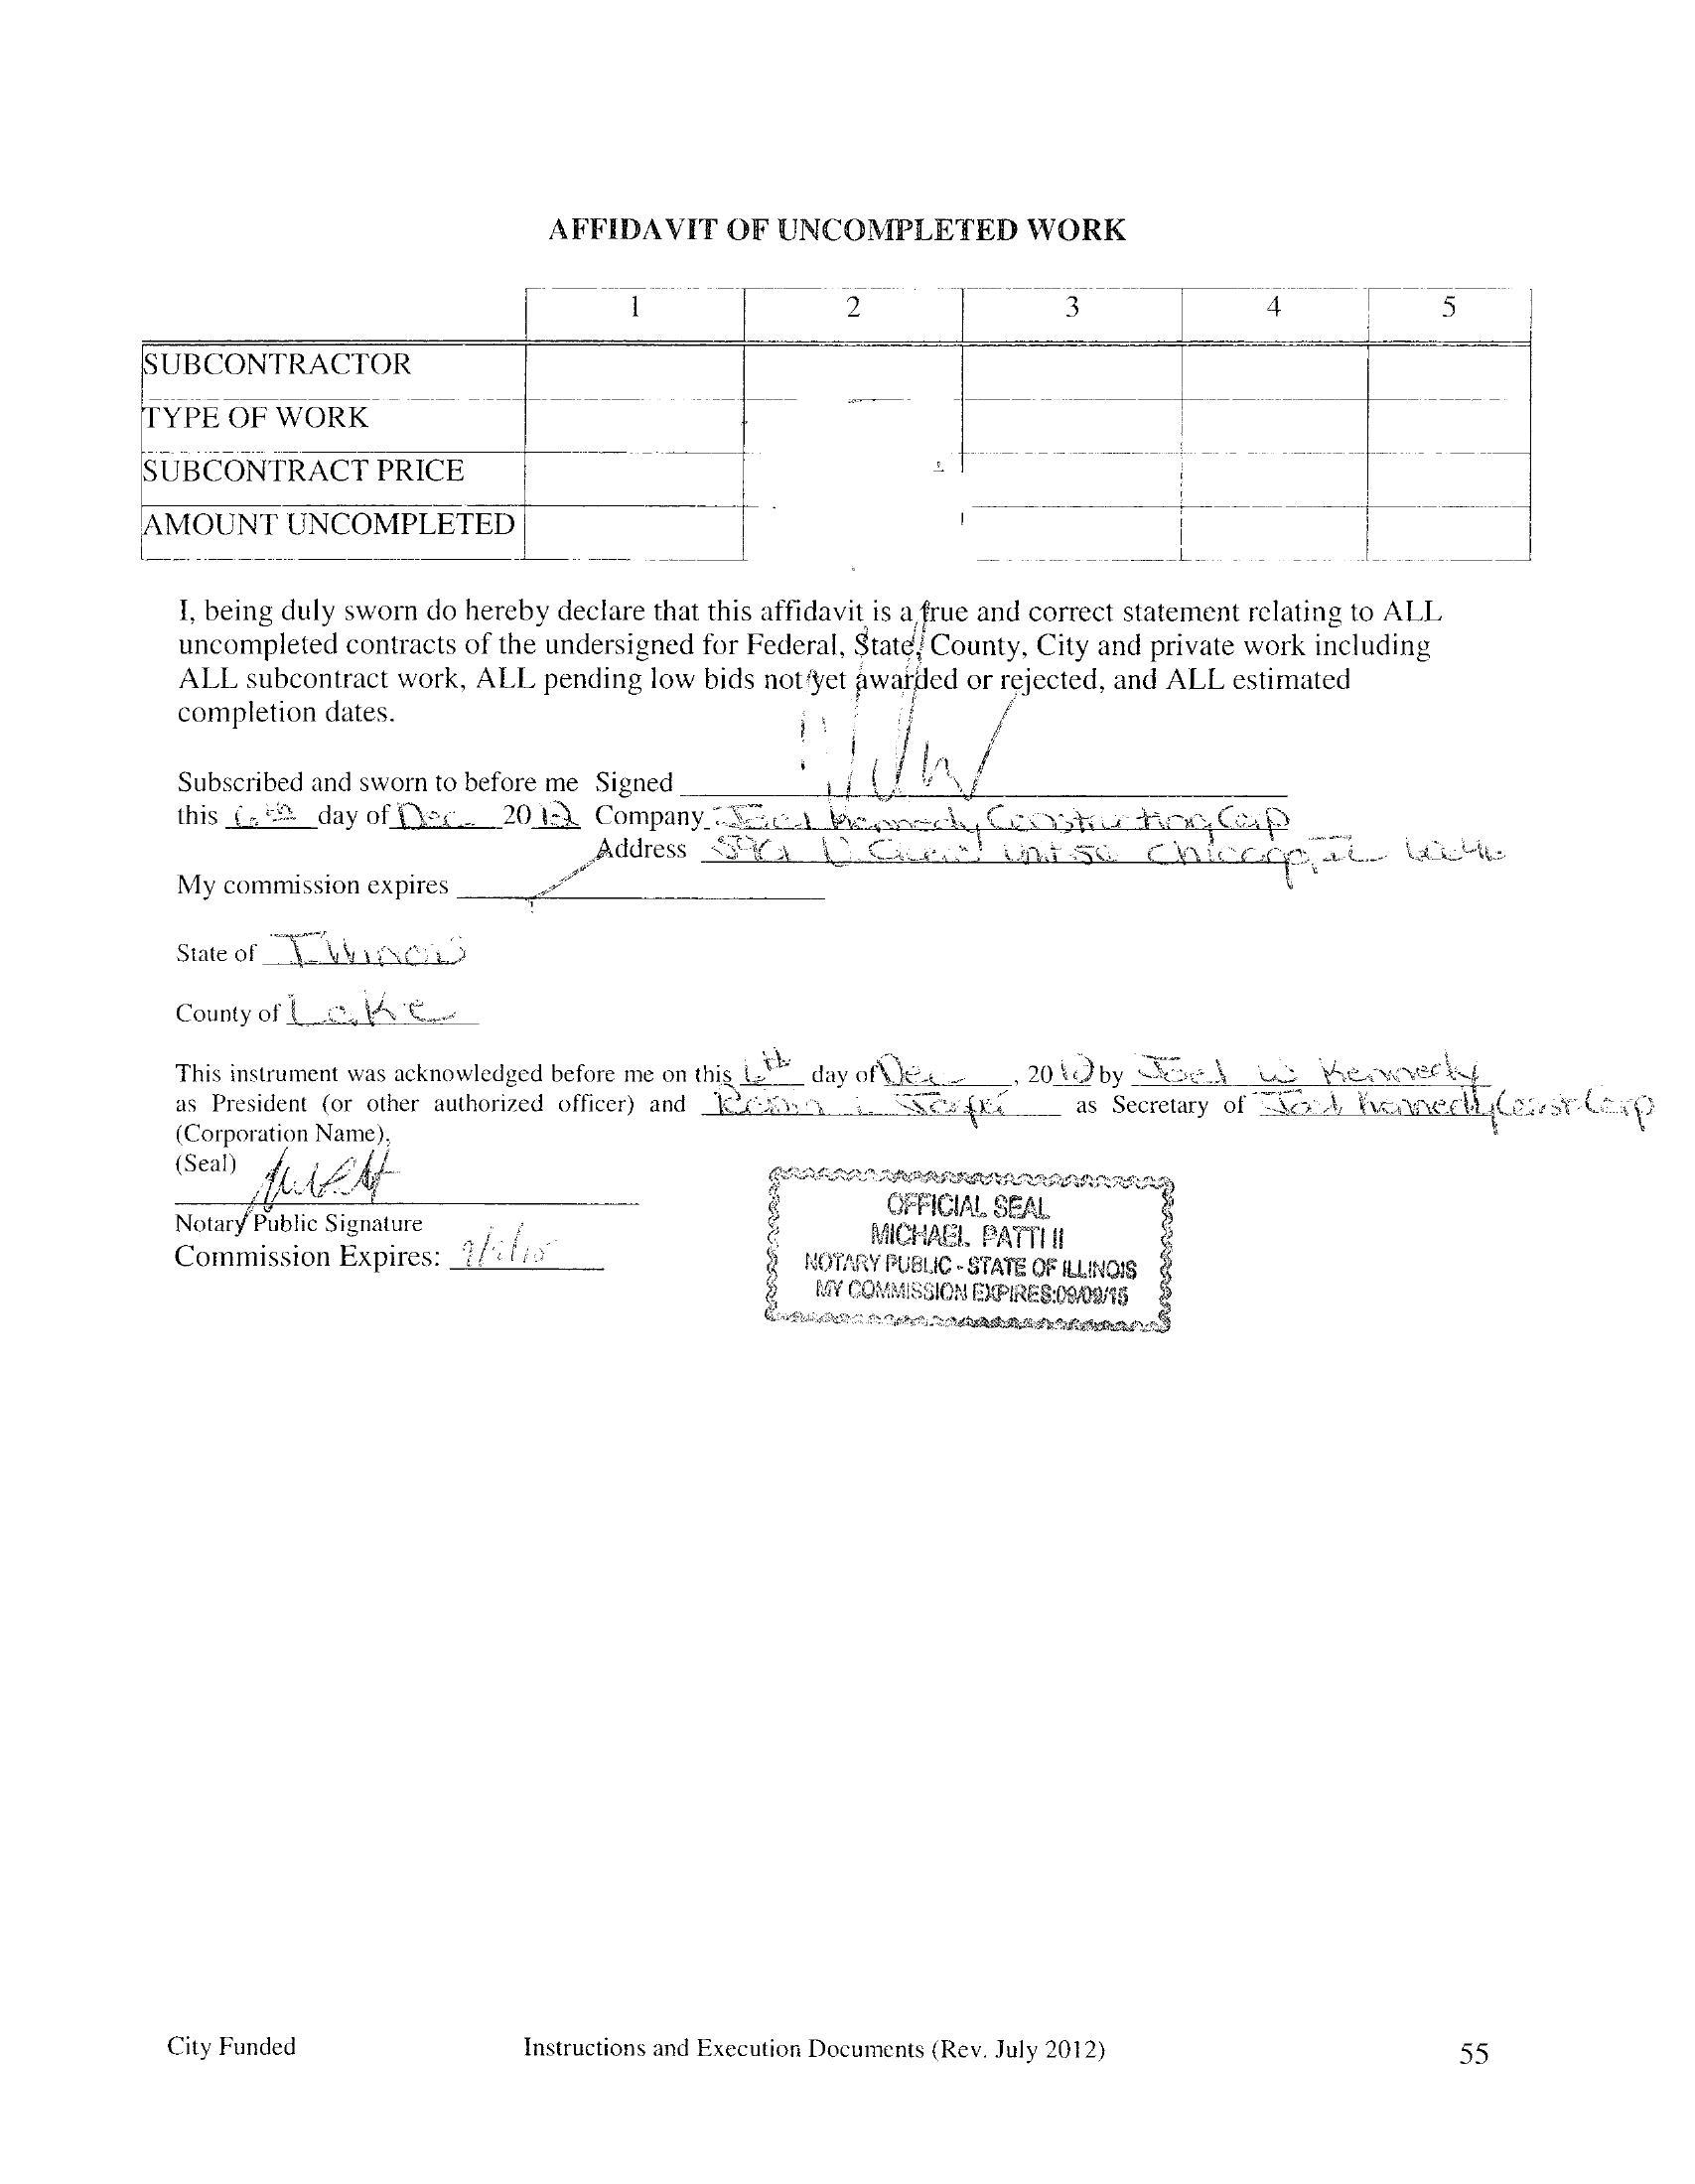 AFFIDAVIT OF UNCOMPLETED WORK
1 2 3 4 5
SUBCONTRACTOR
TYPE OF WORK
SUBCONTRACT PRICE
AMOUNT UNCOMPLETED
I, being duly sworn do hereby declare that this affidavit is a true and correct statement relating to ALL
uncompleted contracts of the undersigned for Federal, State, County, City and private work including
ALL subcontract work, ALL pending low bids not yet awarded or rejected, and ALL estimated
completion dates.
Subscribed and sworn to before me Signed
this 6th day of Dec. 2012 Company Joel Kennedy Constructing Corp
Address Unit 5a Chicago, IL
My commission expires
State of Illinois
County of Lake
This instrument was acknowledged before me on this 6th day of Dec , 20 by Joel W Kennedy
as President (or other authorized officer) and as Secretary of Joel Kennedy Const Corp
(Corporation Name).
(Seal)
Notary Public Signature
Commission Expires:
OFFICIAL SEAL
MICHAEL PATTI II
NOTARY PUBLIC - STATE OF ILLINOIS
MY COMMISSION EXPIRES:09/09/15
City Funded Instructions and Execution Documents (Rev. July 2012) 55